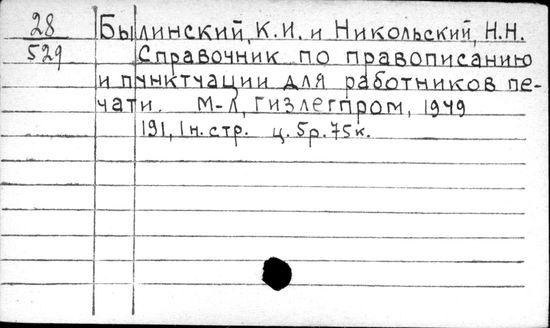 28 Былинский, К.И. и Никольский, Н.Н.
529 Справочник по правописанию
и пунктуации для работников пе-
чати. М-Л, Гизлегпром, 1949
191, 1н. стр. ц. 5р. 75к.